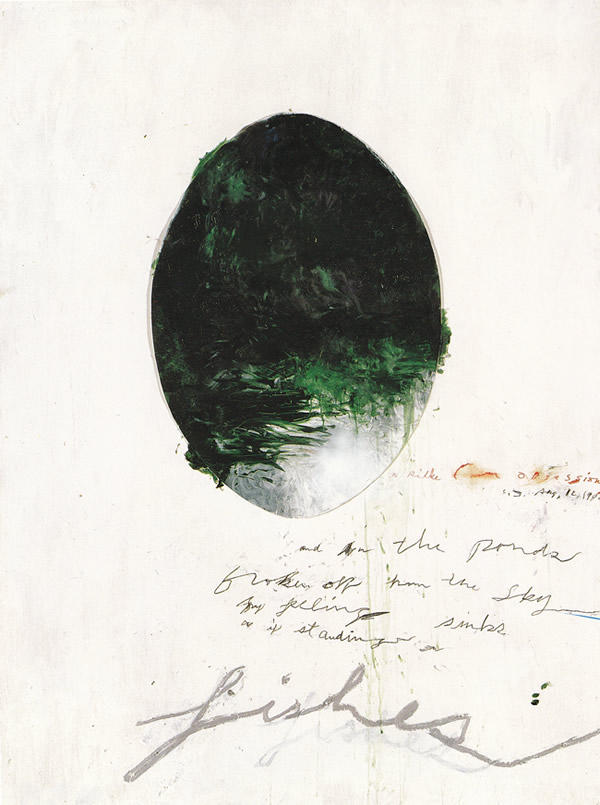 Rilke obsession
Aug,
and in the ponds
broken off from the Sky
my feeling sinks
as if standing on
fishes